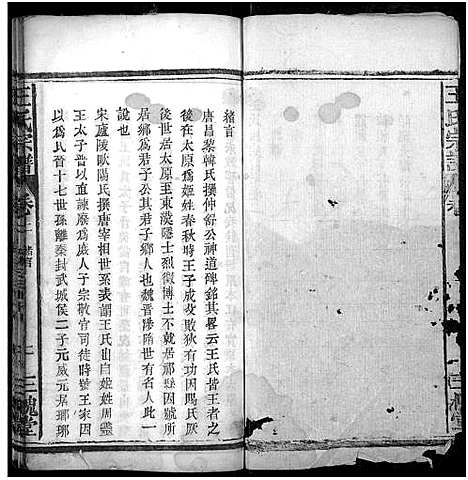 緒言
唐昌黎韓氏撰仲舒公神道碑銘其畧云王氏皆王者之
後在太原爲姬姓春秋時王子成父敗狄有功因賜氏厥
後世居太原至東漢隱士烈徵博士不就居祁縣因號所
居鄉爲君子公其君子鄉人也魏晉降隋世有名人此一
說也
宋廬陵歐陽氏撰唐宰相世系表謂王氏由姬姓周靈
王太子晉以直諫廢爲庶人子宗敬官司徒時號王家因
以爲氏晉十七世孫離秦封武城侯二子元威元居瑯琊
王氏宗譜
卷一
緒言
三槐堂
王氏宗譜
三槐堂